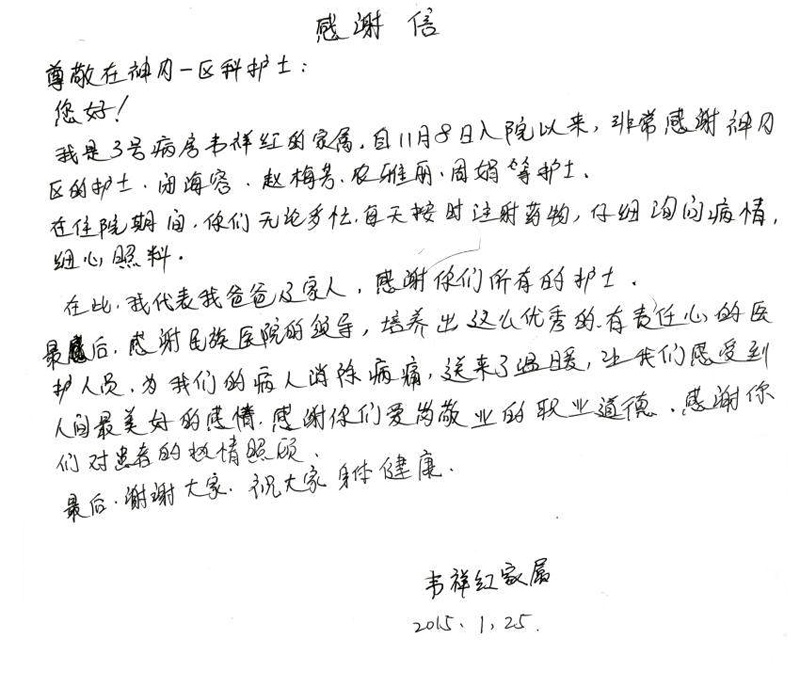 感谢信
尊敬在神内一区科护士：
您好！
我是3号病房韦祥红的家属，自11月8日入院以来，非常感谢神内
区的护士．闭海容．赵梅芳．农雅丽．周娟等护士．
在住院期间，你们无论多忙，每天按时注射药物，仔细询问病情，
细心照料．
在此，我代表我爸爸及家人，感谢你们所有的护士．
最后，感谢民族医院的领导，培养出这么优秀的．有责任心的医
护人员，为我们的病人消除病痛，送来了温暖，让我们感受到
人间最美好的感情．感谢你们爱岗敬业的职业道德．感谢你
们对患者的热情照顾．
最后．谢谢大家．祝大家身体健康．
韦祥红家属
2015.1.25.